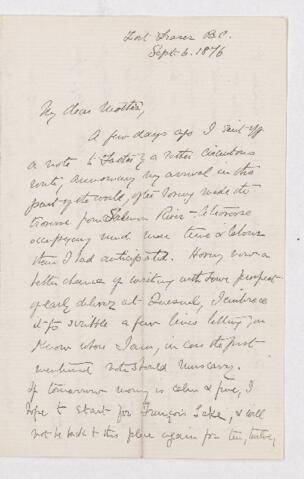 Fort Fraser B.C.
Sept. 6. 1876
My dear Mother,
A few days ago I sent off
a note to Father by a rather circuitous
route, announcing my arrival in this
part of the world, after having made the
traverse from Salmon River - a traverse
occupying much more time & labour
than I had anticipated. Having now a
better chance of writing with some prospect
of early delivery at Quesnel, I embrace
it to scribble a few lines letting you
know where I am, in case the first
mentioned note should miscarry.
If tomorrow morning is calm & fine, I
hope to start for François Lake, & will
not be back to this place again for ten, twelve,